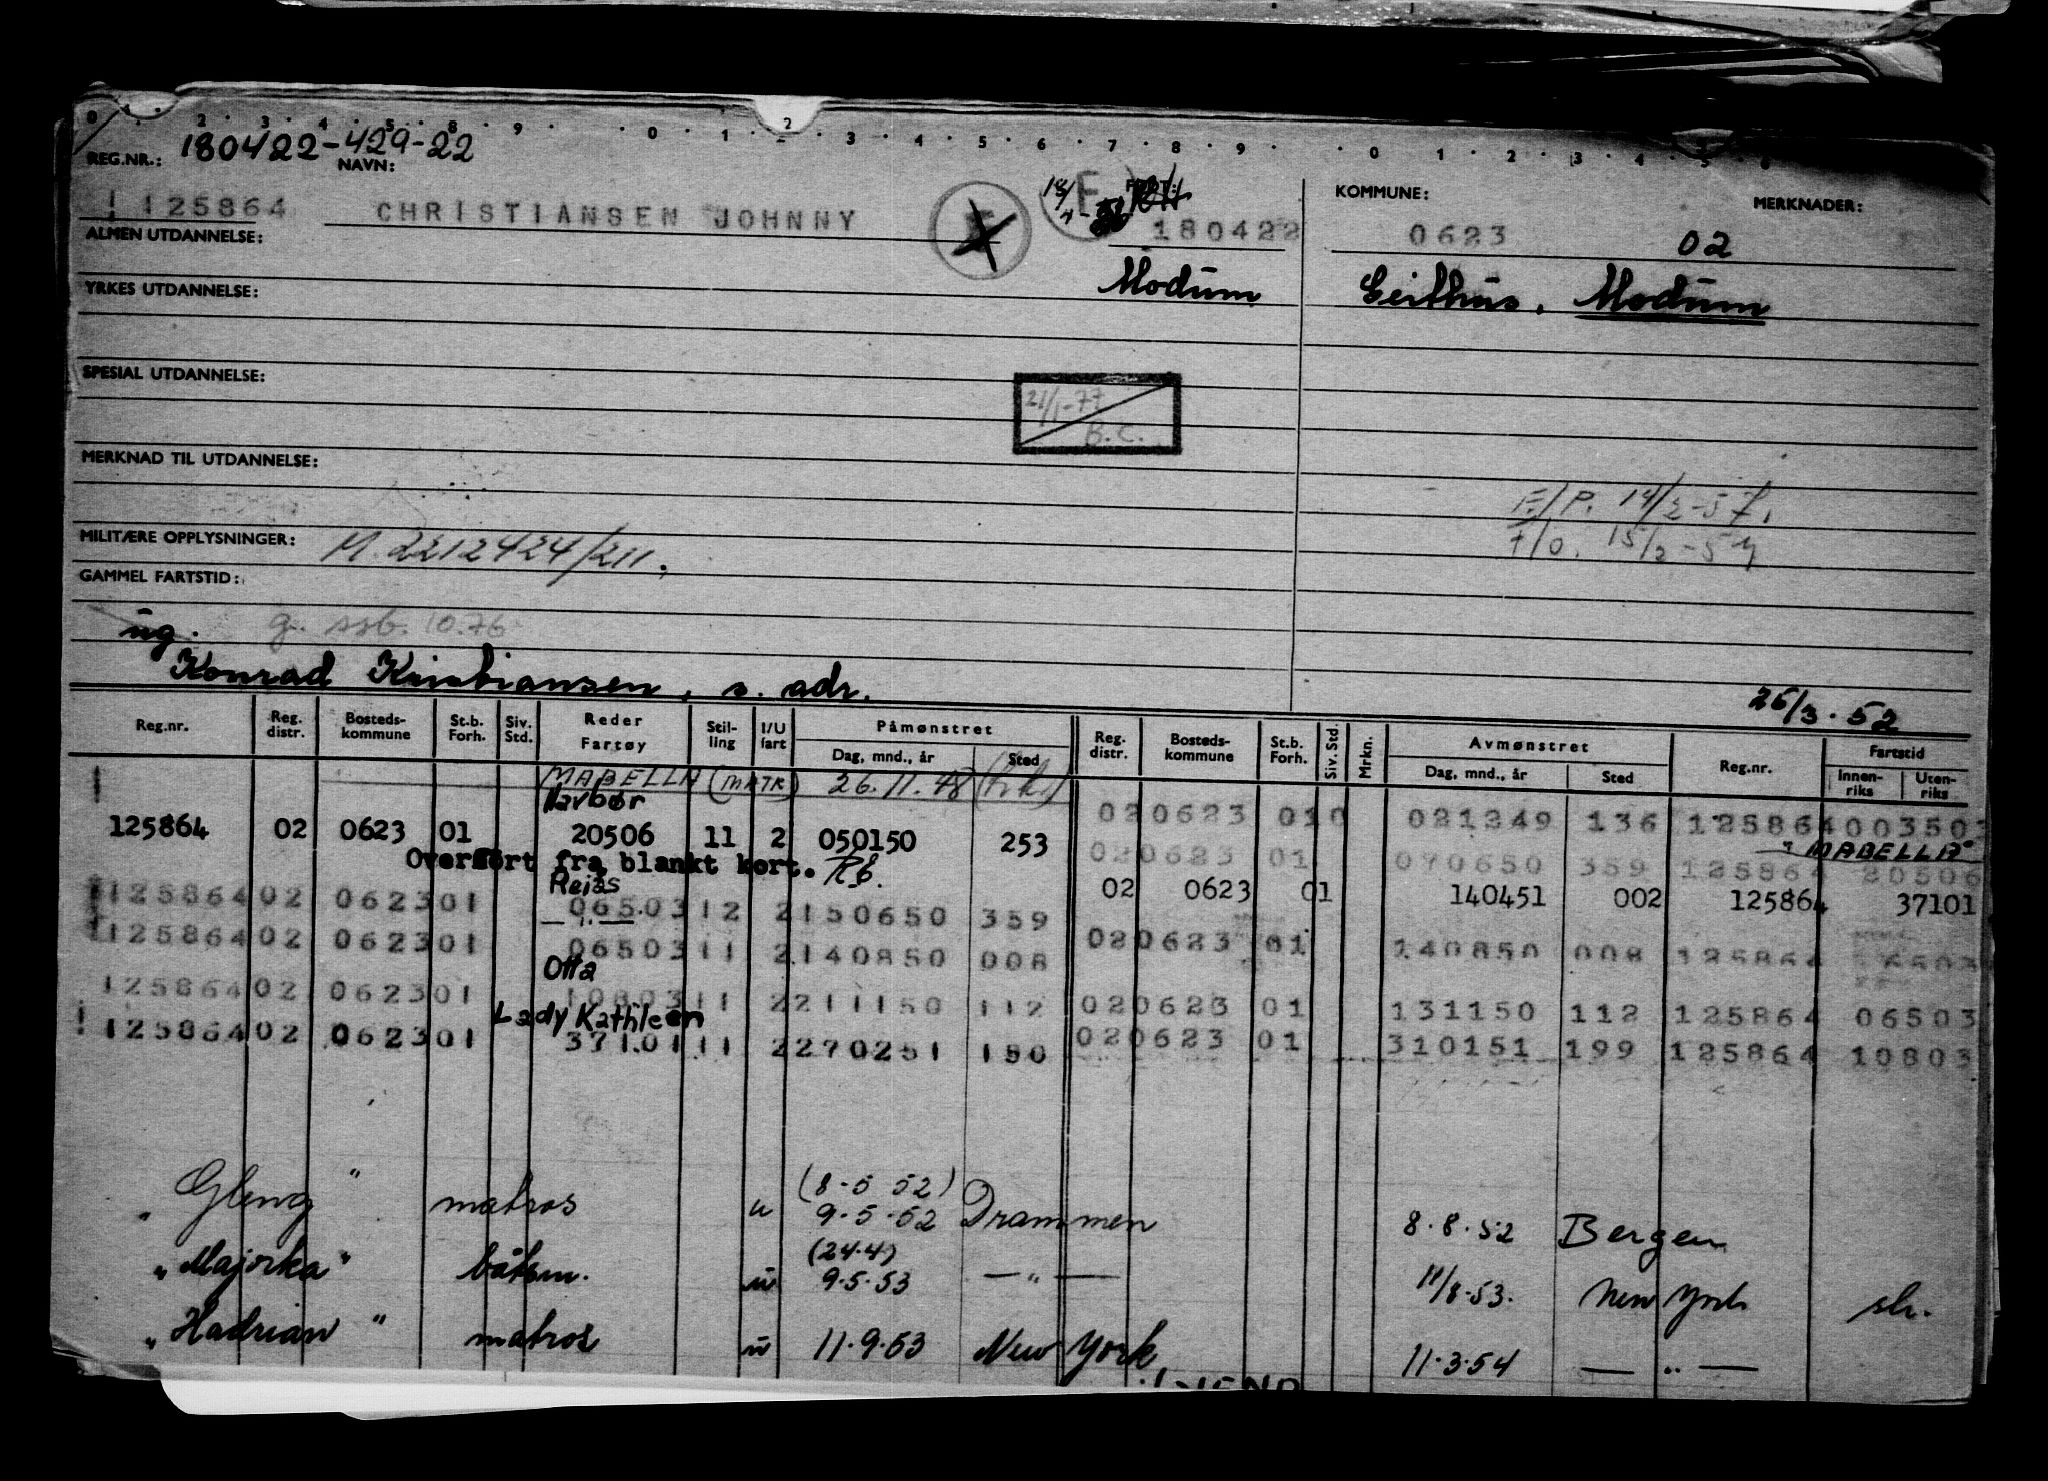 REG.NR.: 180422-429-22 NAVN: FØDT: KOMMUNE: MERKNADER:
125864 CHRISTIANSEN JOHNNY 180422 0623 02
ALMEN UTDANNELSE: Modum Geithus, Modum
YRKES UTDANNELSE:
SPESIAL UTDANNELSE:
21/1-77
B.C.
MERKNAD TIL UTDANNELSE:
F/P. 14/2-57.
MILITÆRE OPPLYSNINGER: M. 2212424/211. F/O. 15/2-57
GAMMEL FARTSTID:
ug. g. ssb. 10.76
Konrad Kristiansen, s. adr. 25/3.52
Reg.nr. Reg. distr. Bosteds-kommune St.b. Forh. Siv. Std. Reder Fartøy Stil-ling I/U fart Påmønstret Dag, mnd., år Sted Reg. distr. Bosteds-kommune St.b. Forh. Siv. Std. Mrkn. Avmønstret Dag, mnd., år Sted Reg.nr. Fartstid Innen-riks Uten-riks
MABELLA (MATR) 26.11.48
Havbør 020623 010 021249 136 125864 003503
125864 02 0623 01 20506 11 2 050150 253 "MABELLA"
Overført fra blankt kort. 020623 01 070650 359 125864 20506
Reias 02 0623 01 140451 002 125864 37101
125864 02 0623 01 06503 12 2 150650 359
— " — 020623 01 140850 008 125864 6503
125864 02 0623 01 06503 11 2 140850 008
Otta
125864 02 0623 01 10803 11 2 211150 112 020623 01 131150 112 125864 06503
Lady Kathleen
125864 02 0623 01 37101 11 2 270251 150 020623 01 310151 199 125864 10803
(8-5 52)
"Gleng" matros u 9-5-52 Drammen 8.8.52 Bergen
(24.4)
"Majorka" båtsm. u 9.5.53 — " — 11/8.53. New York sk.
"Hadrian" matros u 11.9.53 New York 11.3.54 — " —